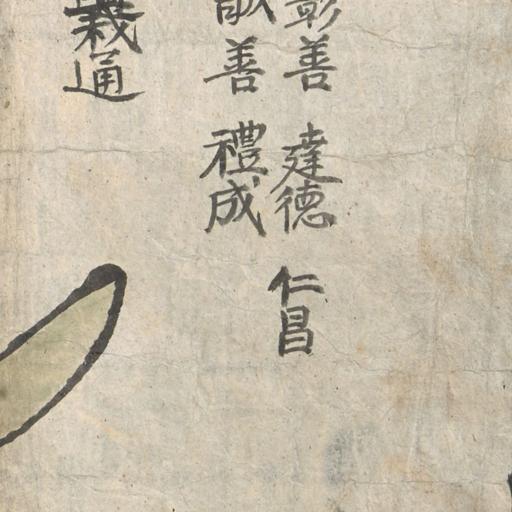 彰善 達德 仁昌
善 禮成
義通